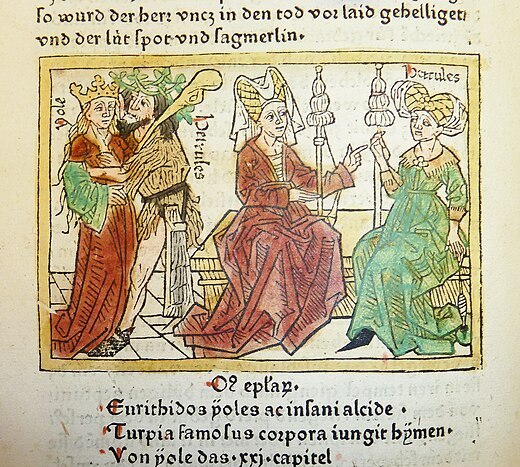 so wurd der herr vncz in den tod vor laid gehelliget
vnd der lüt spot vnd sagmerlin·
yole
Hercules
Hercules
Eurithidos ÿoles ac insani alcide ·
Turpia famosus corpora iungit hÿmen ·
Von ÿole das · xxj · capitel